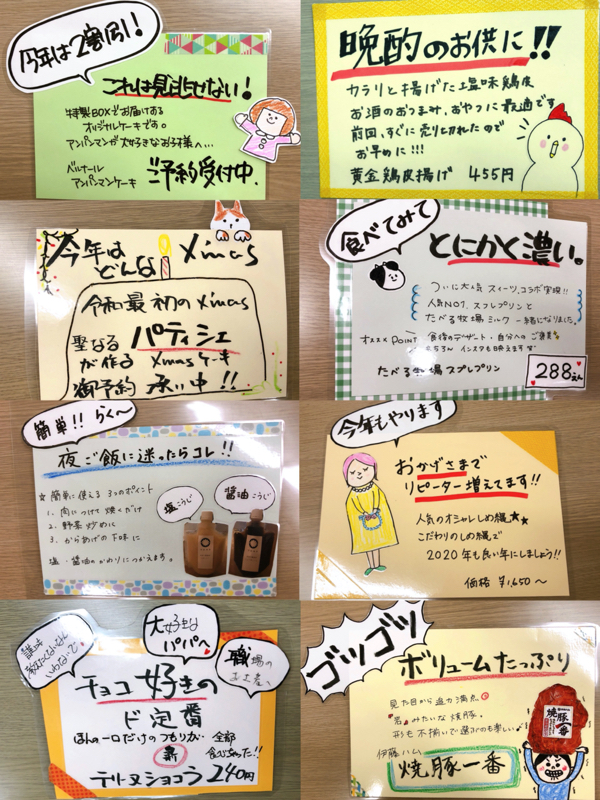 今年は2層!!
これは見逃せない!
特製BOXでお届けする
オリジナルケーキです。
アンパンマンが大好きなお子様へ…
ベルナール
アンパンマンケーキ
ご予約受付中.
晩酌のお供に!!
カラリと揚げた塩味鶏皮
お酒のおつまみ、おやつに最適です
前回、すぐに売り切れたので
お早めに!!!
黄金鶏皮揚げ 455円
今年は
どんな Xmas
令和最初のXmas
聖なる パティシェ
が作る Xmasケーキ
御予約 承り中!!
食べてみて
とにかく濃い。
ついに大人気 スイーツ、コラボ実現!!
人気NO1. スフレプリンと
たべる牧場ミルク 一緒になりました。
オススメPOINT 食後のデザート・自分へのご褒美
もちろん インスタも映えます
たべる牧場スフレプリン
288えん
簡単!! らく〜
夜ご飯に迷ったらコレ!!
☆ 簡単に使える 3つのポイント
1. 肉につけて焼くだけ
2. 野菜炒めに
3. からあげの下味に
塩・醤油のかわりにつかえます。
塩こうじ
醤油こうじ
今年もやります
おかげさまで
リピーター増えてます!!
人気のオシャレしめ縄★★
こだわりのしめ縄で
2020年も良い年にしましょう!!
価格 ¥1,650〜
大好きな
パパへ
職場の
お土産へ
チョコ好きの
ド定番
ほんの一口だけのつもりが、全部
食べちゃった!!
新
テリーヌショコラ 240円
ゴツゴツ
ボリュームたっぷり
見た目から迫力満点
"岩"みたいな焼豚。
形も不揃いで選ぶのも楽しい♪
伊藤ハム
焼豚一番
焼豚一番